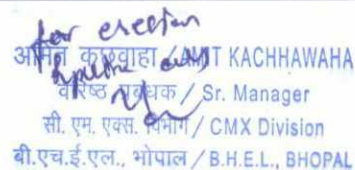 for erection
अमित कछवाहा / AMIT KACHHAWAHA
वरिष्ठ प्रबंधक / Sr. Manager
सी. एम. एक्स. विभाग / CMX Division
बी.एच.ई.एल., भोपाल / B.H.E.L., BHOPAL